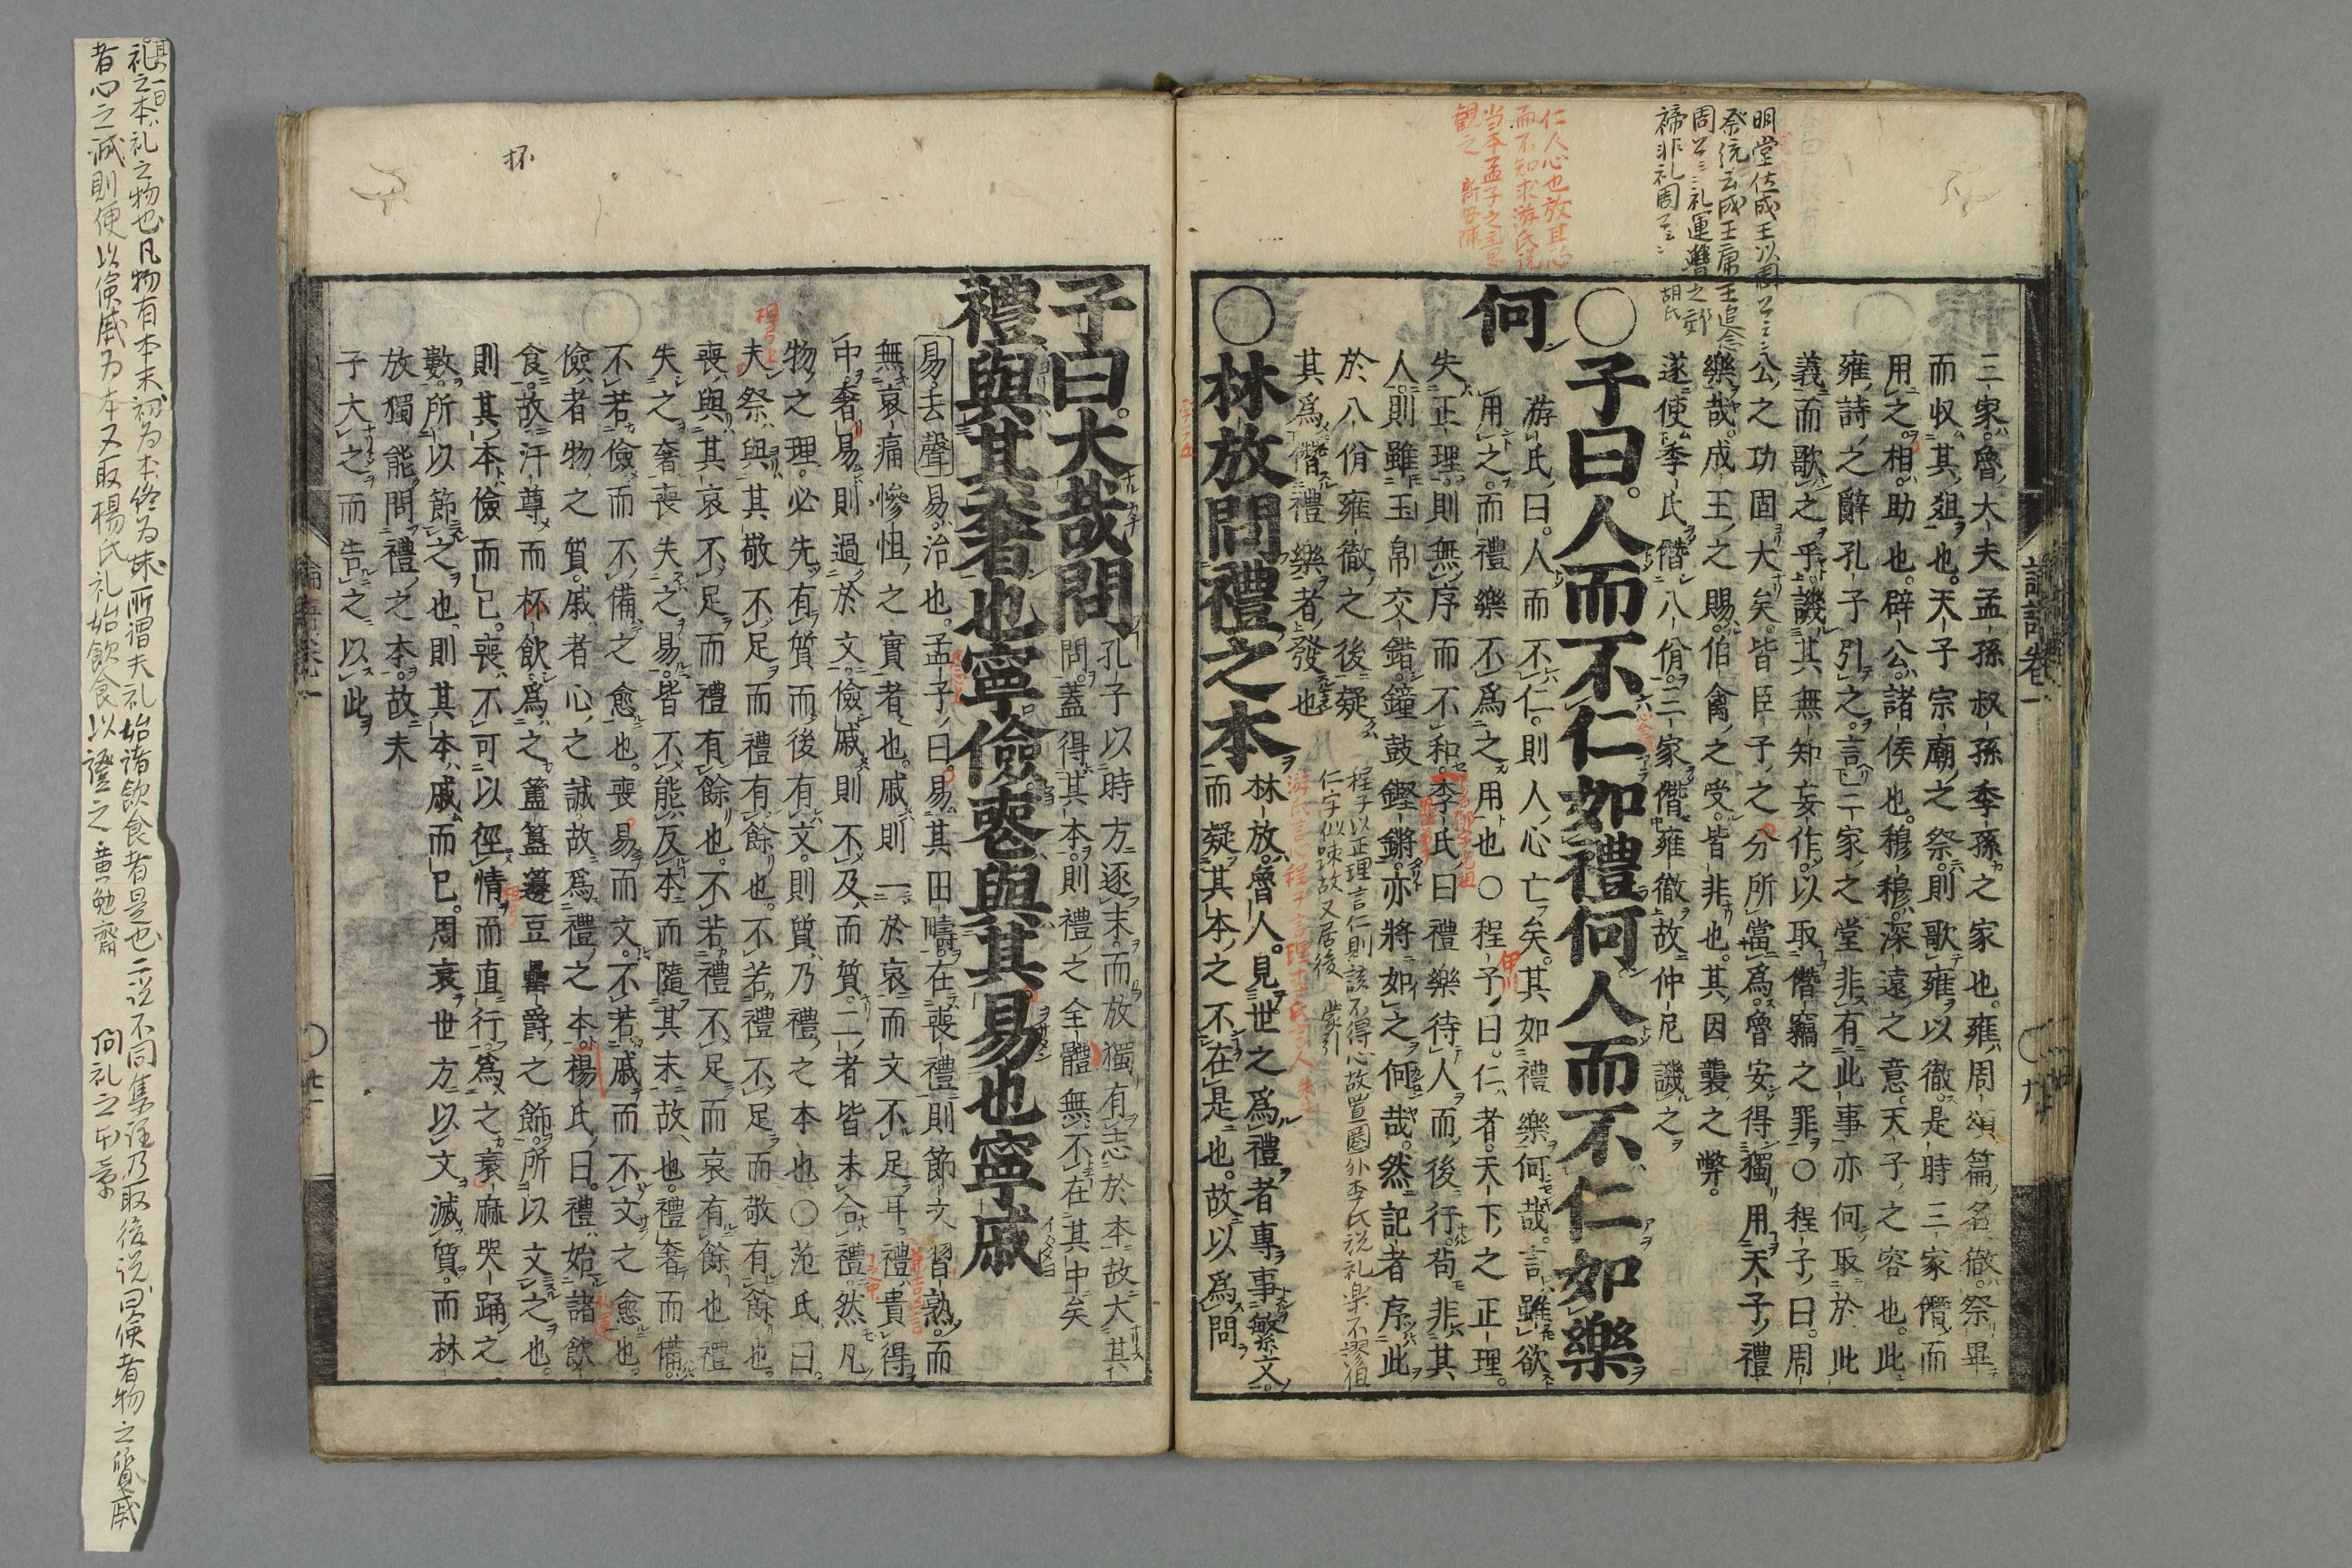 三家魯大夫孟孫叔孫季孫之家也雍周頌篇名徹祭畢
而収其俎也天子宗廟之祭則歌雍以徹是時三家僭而
用之相助也辟公諸侯也穆穆深遠之意天子之容也此
雍詩之辭孔子引之言三家之堂非有此事亦何取於此
義而歌之乎譏其無知妄作以取僭竊之罪○程子曰周
公之功固大矣皆臣子之分所當爲魯安得獨用天子禮
樂哉成王之賜伯禽之受皆非也其因襲之弊
遂使季氏僭八佾三家僭雍徹故仲尼譏之
○子曰人而不仁如禮何人而不仁如樂
何
游氏曰人而不仁則人心亡矣其如禮樂何哉言雖欲
用之而禮樂不爲之用也○程子曰仁者天下之正理
失正理則無序而不和李氏曰禮樂待人而後行苟非其
人則雖玉帛交錯鐘鼓鏗鏘亦將如之何哉然記者序此
於八佾雍徹之後疑
其爲僭禮樂者發也
程子以正理言仁則該不得心故置圏外李氏説礼楽不
仁字似疎故又居後 蒙引
○林放問禮之本
林放魯人見世之爲禮者專事繁文
而疑其本之不在是也故以爲問
論語卷一
○九
明堂位成王以周公
祭統云成王康王追念
周公 礼運魯之郊
禘非礼周公
胡氏
仁人心也放其心
而不知求游氏説
当本孟子之意
観之 新安陳
子曰大哉問
孔子以時方逐末而放獨有志於本故大其
問蓋得其本則禮之全體無不在其中矣
禮與其奢也寧儉喪與其易也寧戚
易去聲易治也孟子曰易其田疇在喪禮則節文習熟而
無哀痛慘怛之實者也戚則一於哀而文不足耳禮貴得
中奢易則過於文儉戚則不及而質二者皆未合禮然凡
物之理必先有質而後有文則質乃禮之本也○范氏曰
夫祭與其敬不足而禮有餘也不若禮不足而敬有餘也
喪與其哀不足而禮有餘也不若禮不足而哀有餘也禮
失之奢喪失之易皆不能反本而隨其末故也禮奢而備
不若儉而不備之愈也喪易而文不若戚而不文之愈也
儉者物之質戚者心之誠故爲禮之本楊氏曰禮始諸飲
食故汙尊而杯飲爲之簠簋籩豆罍爵之飾所以文之也
則其本儉而已喪不可以徑情而直行爲之衰麻哭踊之
數所以節之也則其本戚而已周衰世方以文滅質而林
放獨能問禮之本故夫
子大之而告之以此
杯
檀弓上
其一曰
礼之本礼之物也凡物有本末初為本終為末所謂夫礼始諸飲食者是也二説不同集註乃取後説曰儉者物之質戚
者心之誠則便以儉戚為本又取楊氏礼始飲食以證之 黄勉齋 問礼之本章